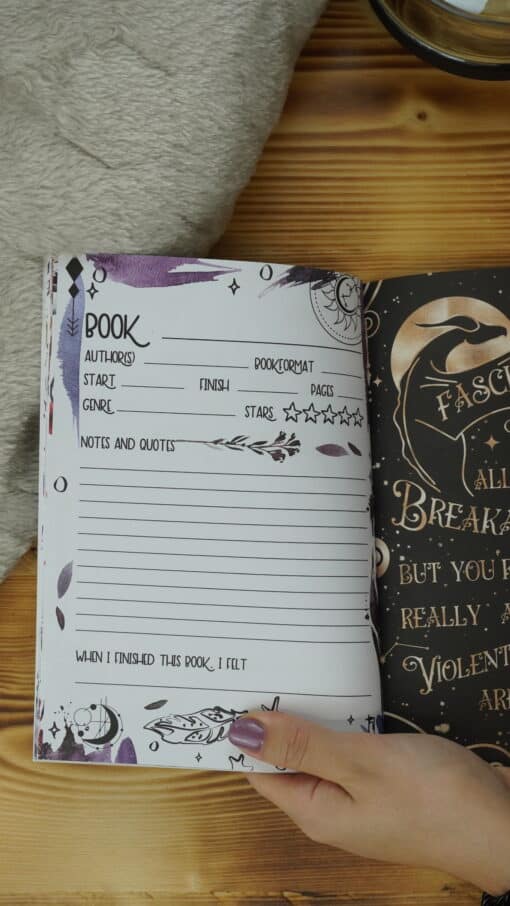 BOOK
AUTHOR(S) BOOKFORMAT
START FINISH PAGES
GENRE STARS
NOTES AND QUOTES
WHEN I FINISHED THIS BOOK, I FELT
BREAKA
BUT YOU
REALLY
VIOLENT